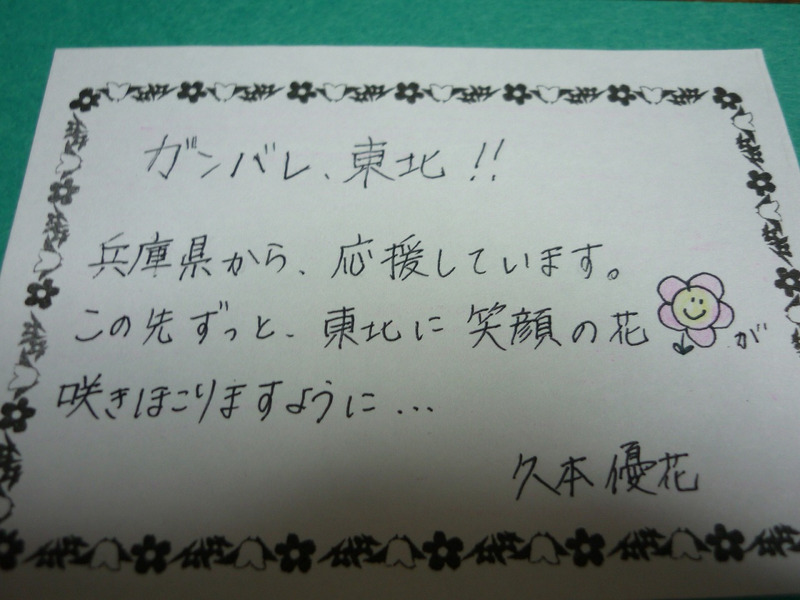 ガンバレ、東北!!
兵庫県から、応援しています。
この先ずっと、東北に笑顔の花が
咲きほこりますように...
久本優花